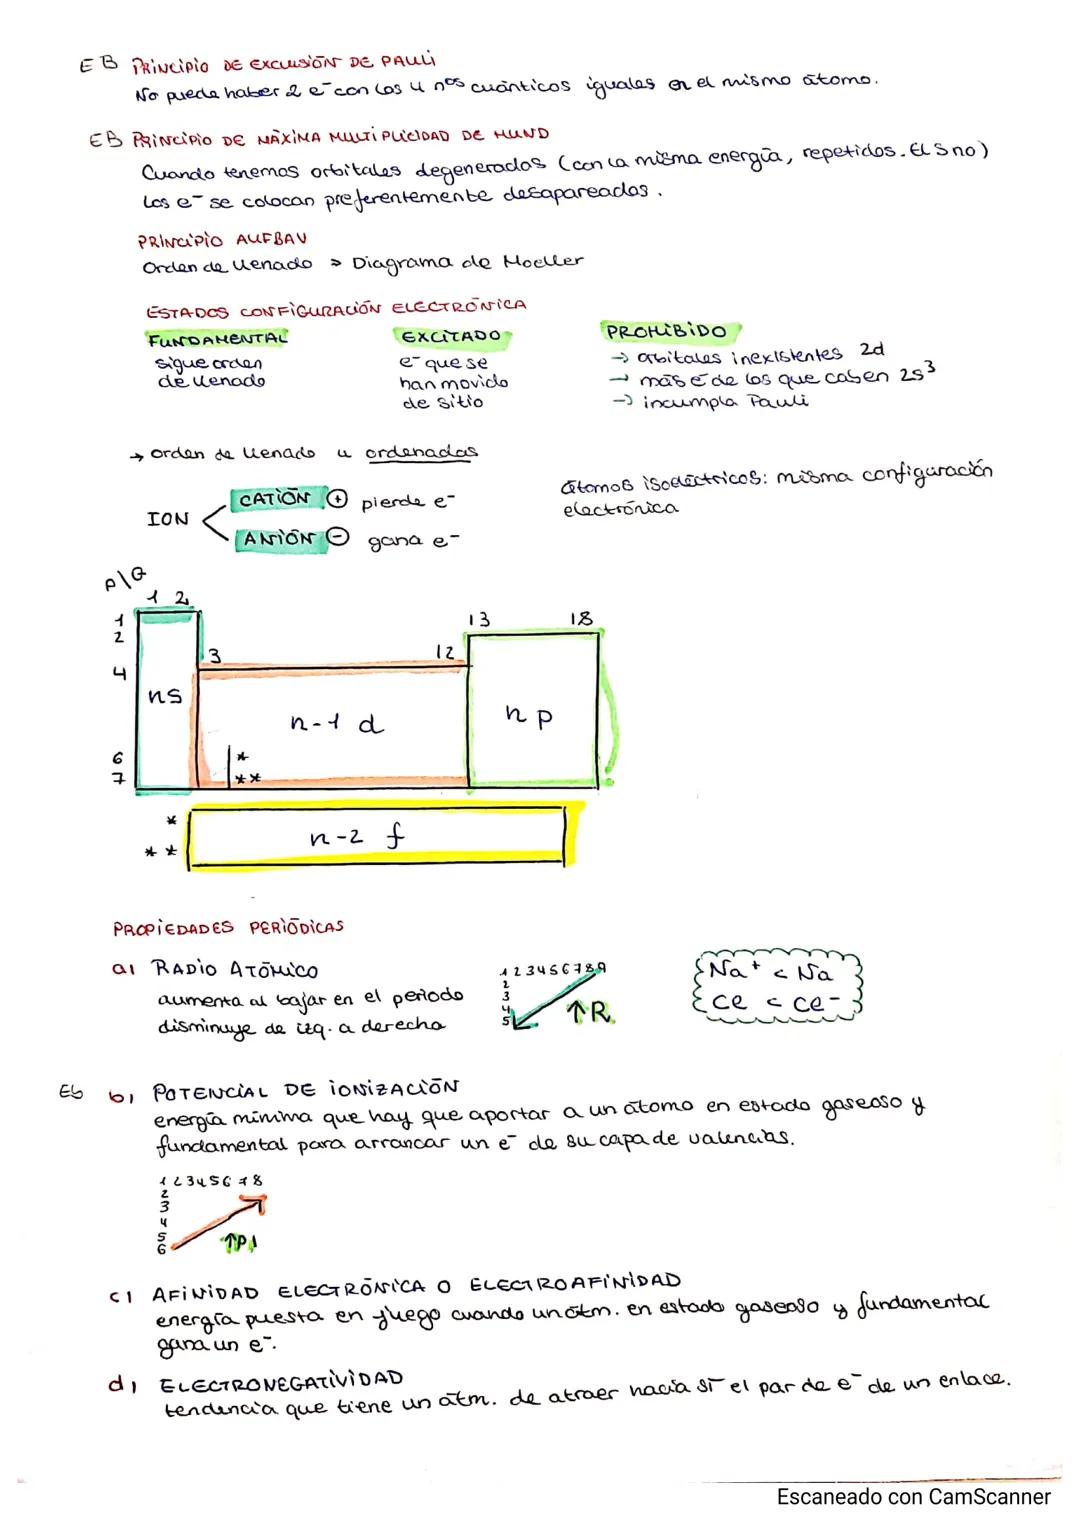 EB PRINCIPIO DE EXCLUSIÓN DE PAULI
No puede haber 2 e⁻ con los 4 nºs cuánticos iguales en el mismo átomo.
EB PRINCIPIO DE MÁXIMA MULTIPLICIDAD DE HUND
Cuando tenemos orbitales degenerados (con la misma energía, repetidos. El S no)
los e⁻ se colocan preferentemente desapareados.
PRINCIPIO AUFBAU
Orden de llenado > Diagrama de Moeller
ESTADOS CONFIGURACIÓN ELECTRÓNICA
FUNDAMENTAL EXCITADO PROHIBIDO
sigue orden
de llenado
e⁻ que se
han movido
de sitio
→ orbitales inexistentes 2d
→ más e⁻ de los que caben 2s³
→ incumpla Pauli
→ orden de llenado u ordenadas
ION
CATIÓN ⊕ pierde e⁻
ANIÓN ⊖ gana e⁻
átomos isoeléctricos: misma configuración
electrónica
P\G
1 2
13 18
1
2
3 12
4
ns
n-1 d
n p
6
7
*
**
*
**
n-2 f
PROPIEDADES PERIÓDICAS
a) RADIO ATÓMICO
aumenta al bajar en el periodo
disminuye de izq. a derecha
1 2 3 4 5 6 7 8 9
2
3
4
5
↑R
Na⁺ < Na
Ce < Ce⁻
Eb b) POTENCIAL DE IONIZACIÓN
energía mínima que hay que aportar a un átomo en estado gaseoso y
fundamental para arrancar un e⁻ de su capa de valencias.
1 2 3 4 5 6 7 8
2
3
4
5
6
↑P.I
c) AFINIDAD ELECTRÓNICA O ELECTROAFINIDAD
energía puesta en juego cuando un átm. en estado gaseoso y fundamental
gana un e⁻.
d) ELECTRONEGATIVIDAD
tendencia que tiene un átm. de atraer hacia sí el par de e⁻ de un enlace.
Escaneado con CamScanner